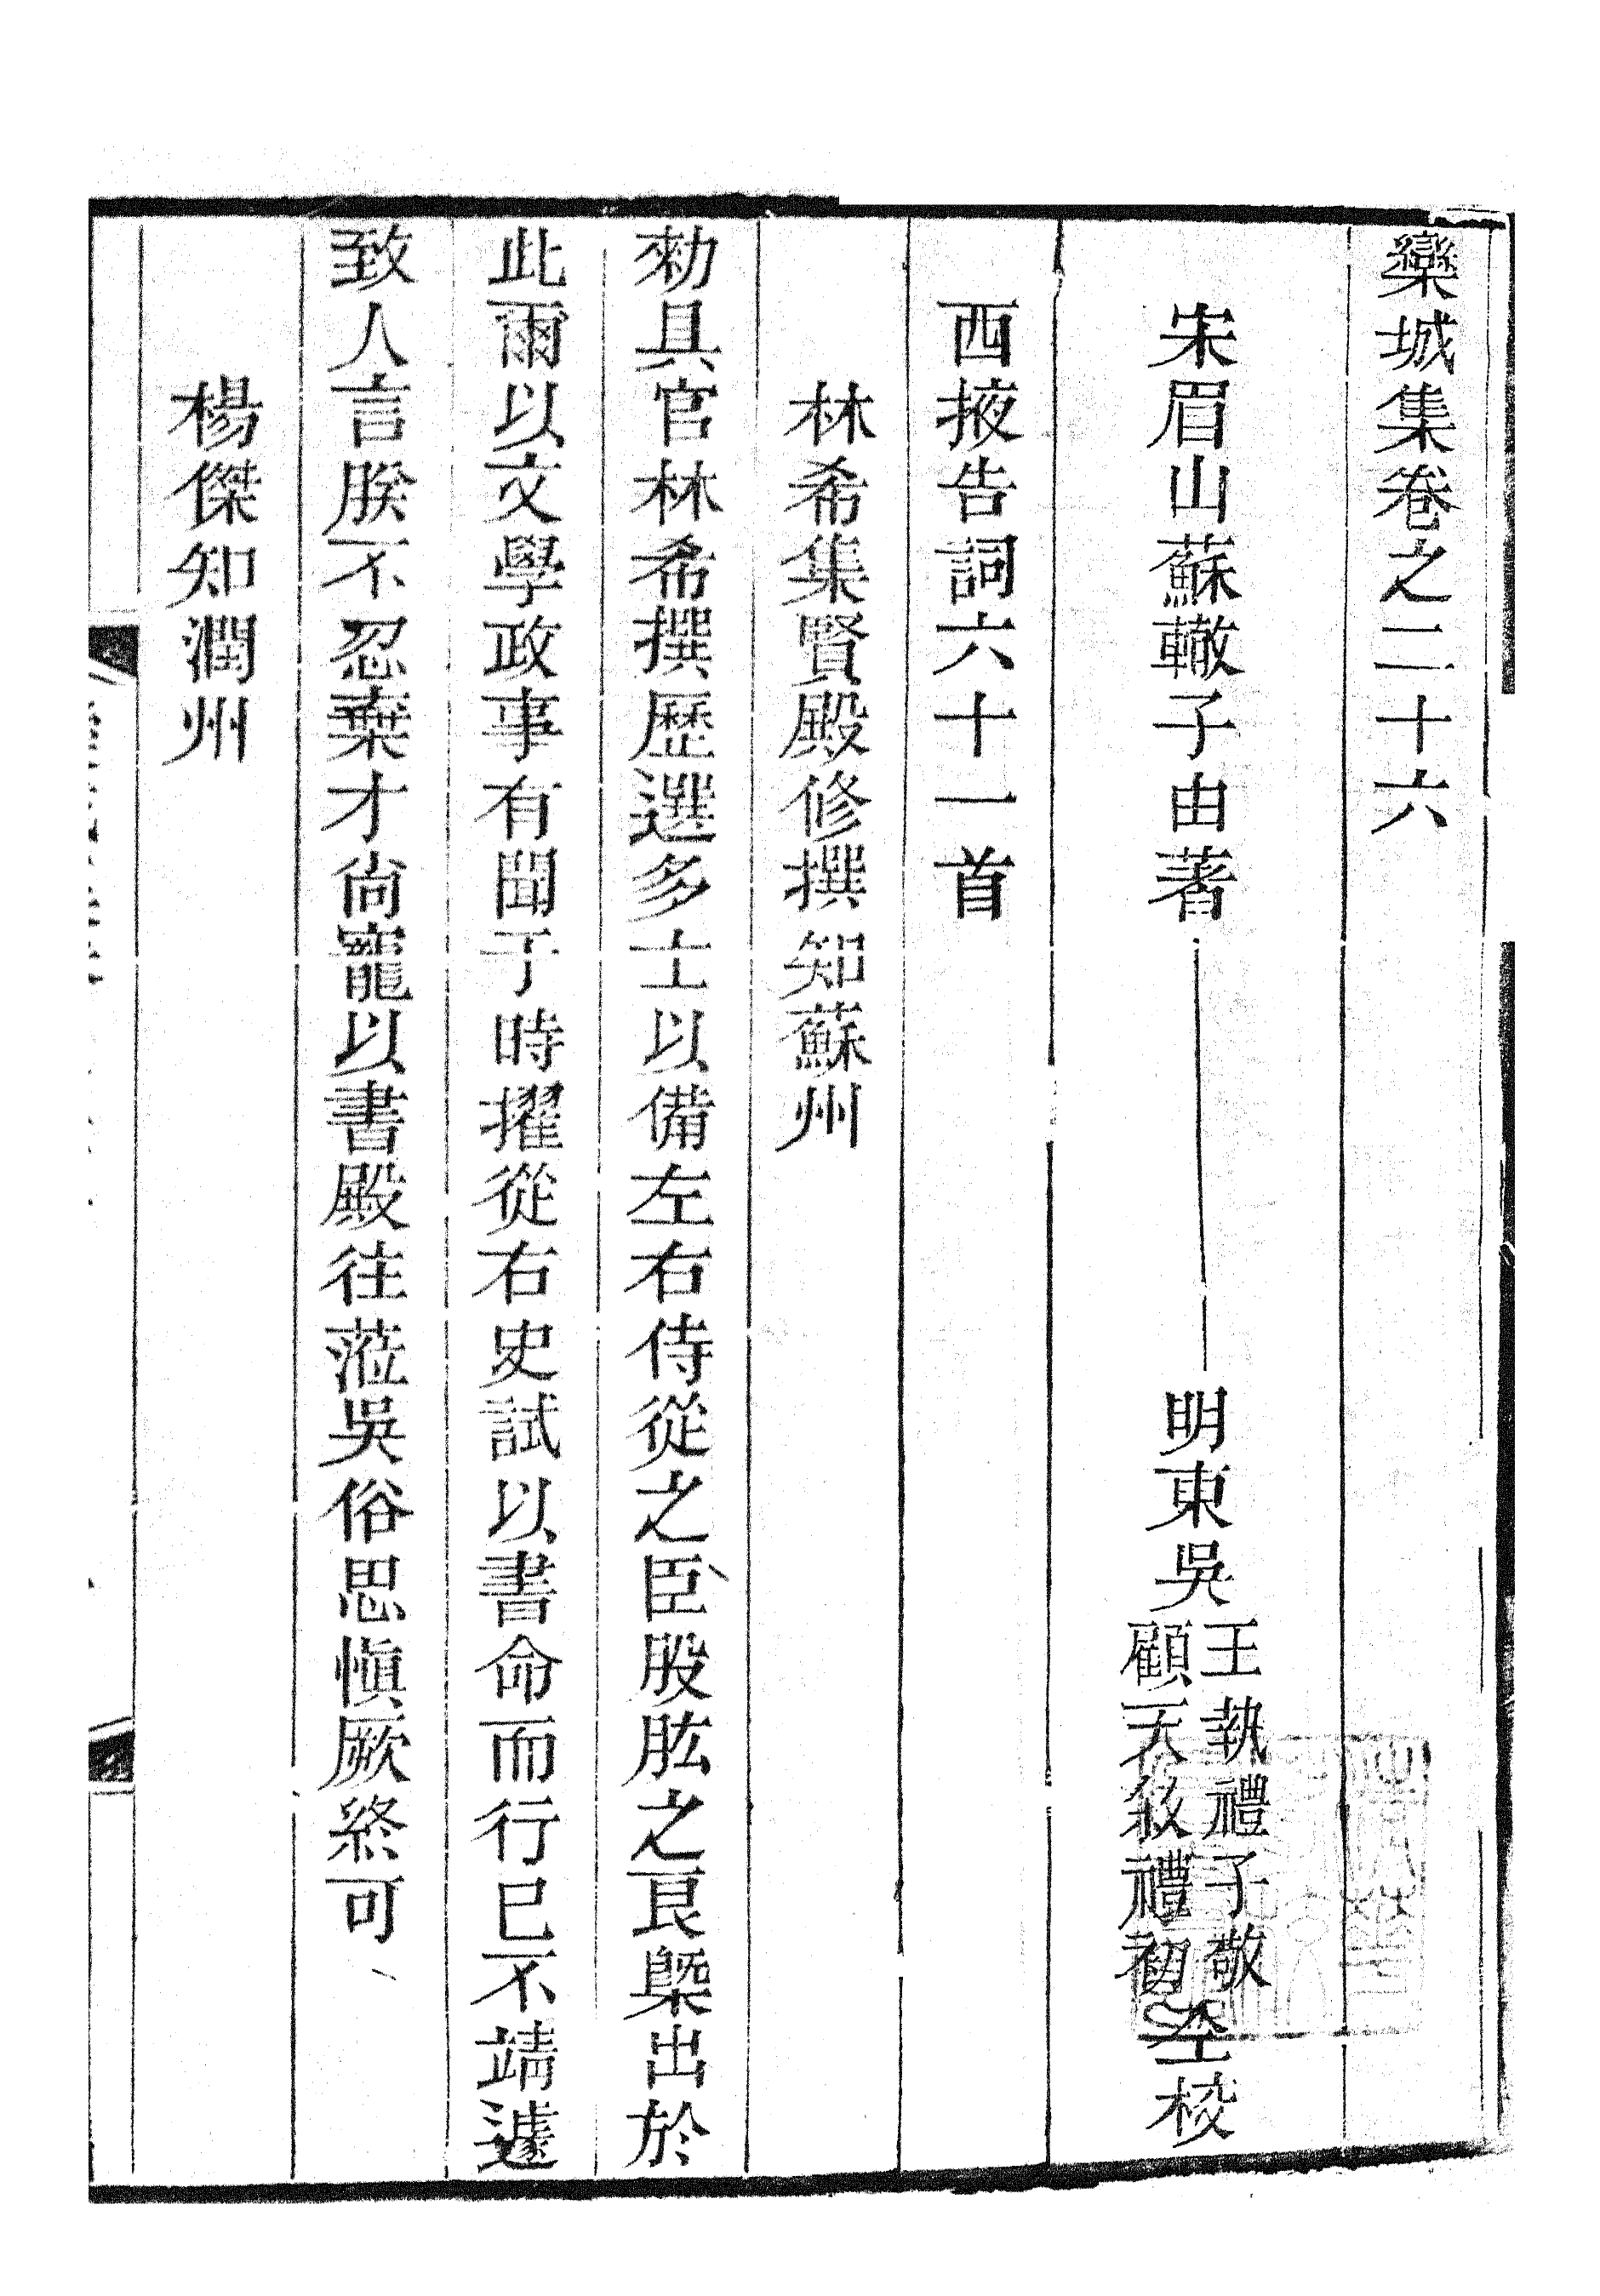 欒城集卷之二十六
宋眉山蘇轍子由著
明東吳王執禮子敬顧天敘禮初仝校
西掖告詞六十一首
林希集賢殿修撰知蘇州
勑具官林希撰歷選多士以備左右侍從之臣股肱之良槩出於
此爾以文學政事有聞于時擢從右史試以書命而行已不靖遽
致人言朕不忍棄才尙寵以書殿往蒞吳俗思愼厥終可
楊傑知潤州